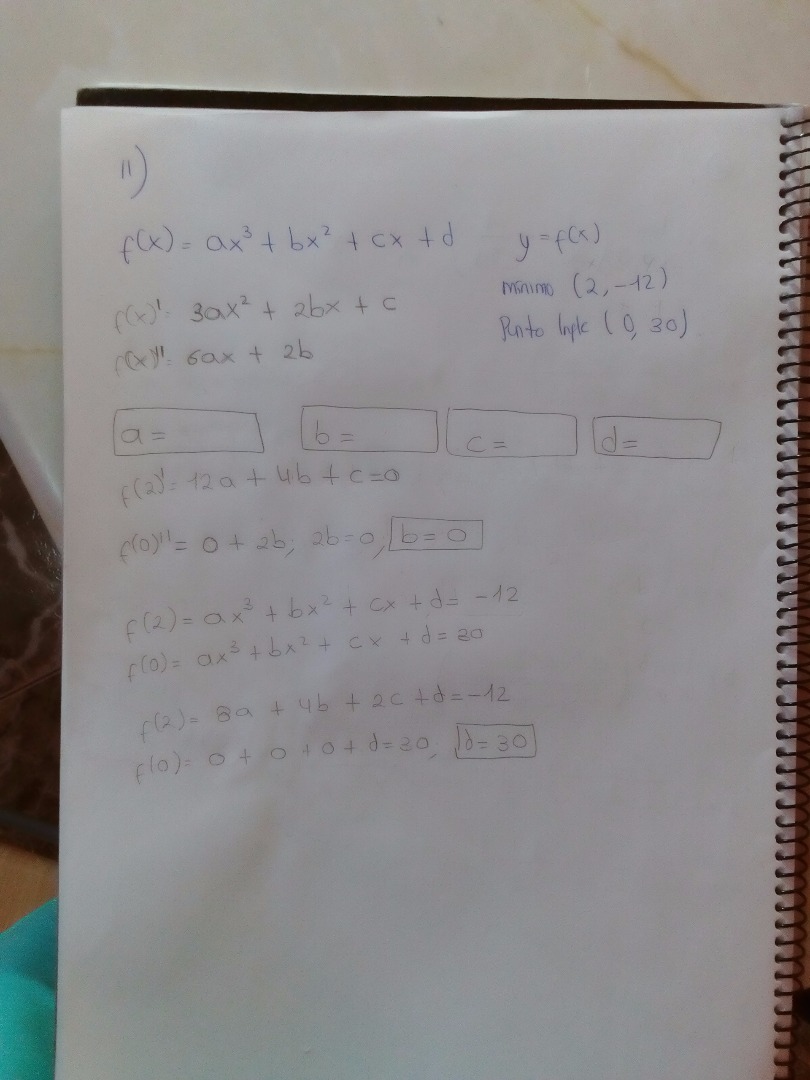 11)
f(x) = ax³ + bx² + cx + d y = f(x)
mínimo (2, -12)
f(x)' = 3ax² + 2bx + c
Punto Inple (0, 30)
f(x)'' = 6ax + 2b
a = b = c = d =
f(2)' = 12a + 4b + c = 0
f(0)'' = 0 + 2b; 2b = 0, b = 0
f(2) = ax³ + bx² + cx + d = -12
f(0) = ax³ + bx² + cx + d = 30
f(2) = 8a + 4b + 2c + d = -12
f(0) = 0 + 0 + 0 + d = 30, d = 30